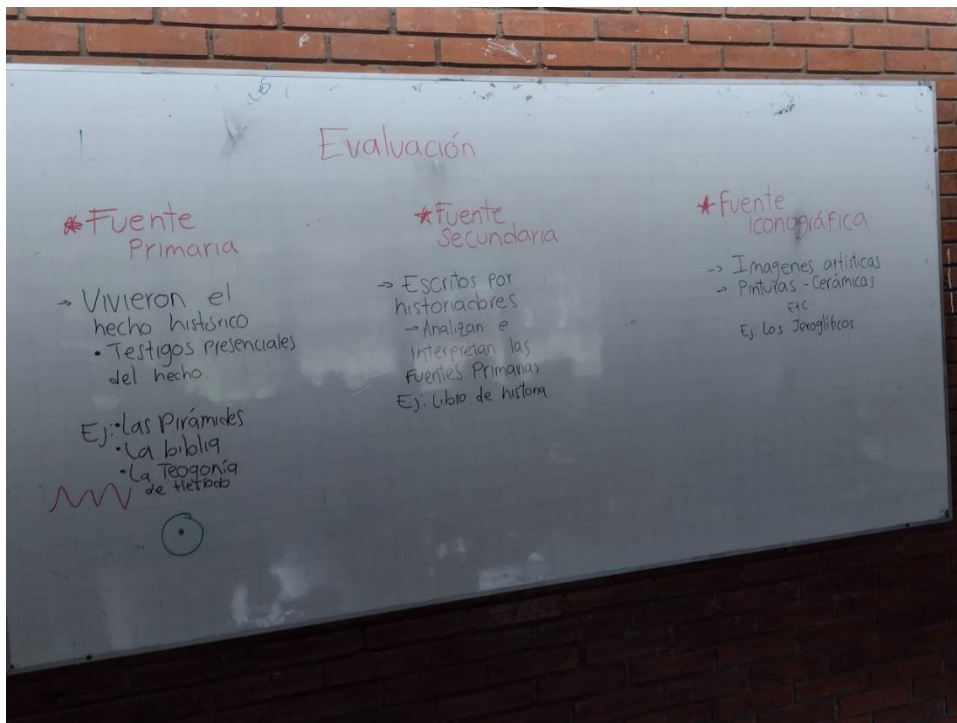 Evaluación
* Fuente
Primaria
→ Vivieron el
hecho histórico
• Testigos presenciales
del hecho.
Ej: • Las Pirámides
• La biblia
• La Teogonía
de
* Fuente
Secundaria
→ Escritos por
historiadores
→ Analizan e
interpretan las
Fuentes Primarias
Ej: Libro de historia
* Fuente
Iconográfica
→ Imagenes artísticas
→ Pinturas - Cerámicas
Etc
Ej: Los Jeroglíficos